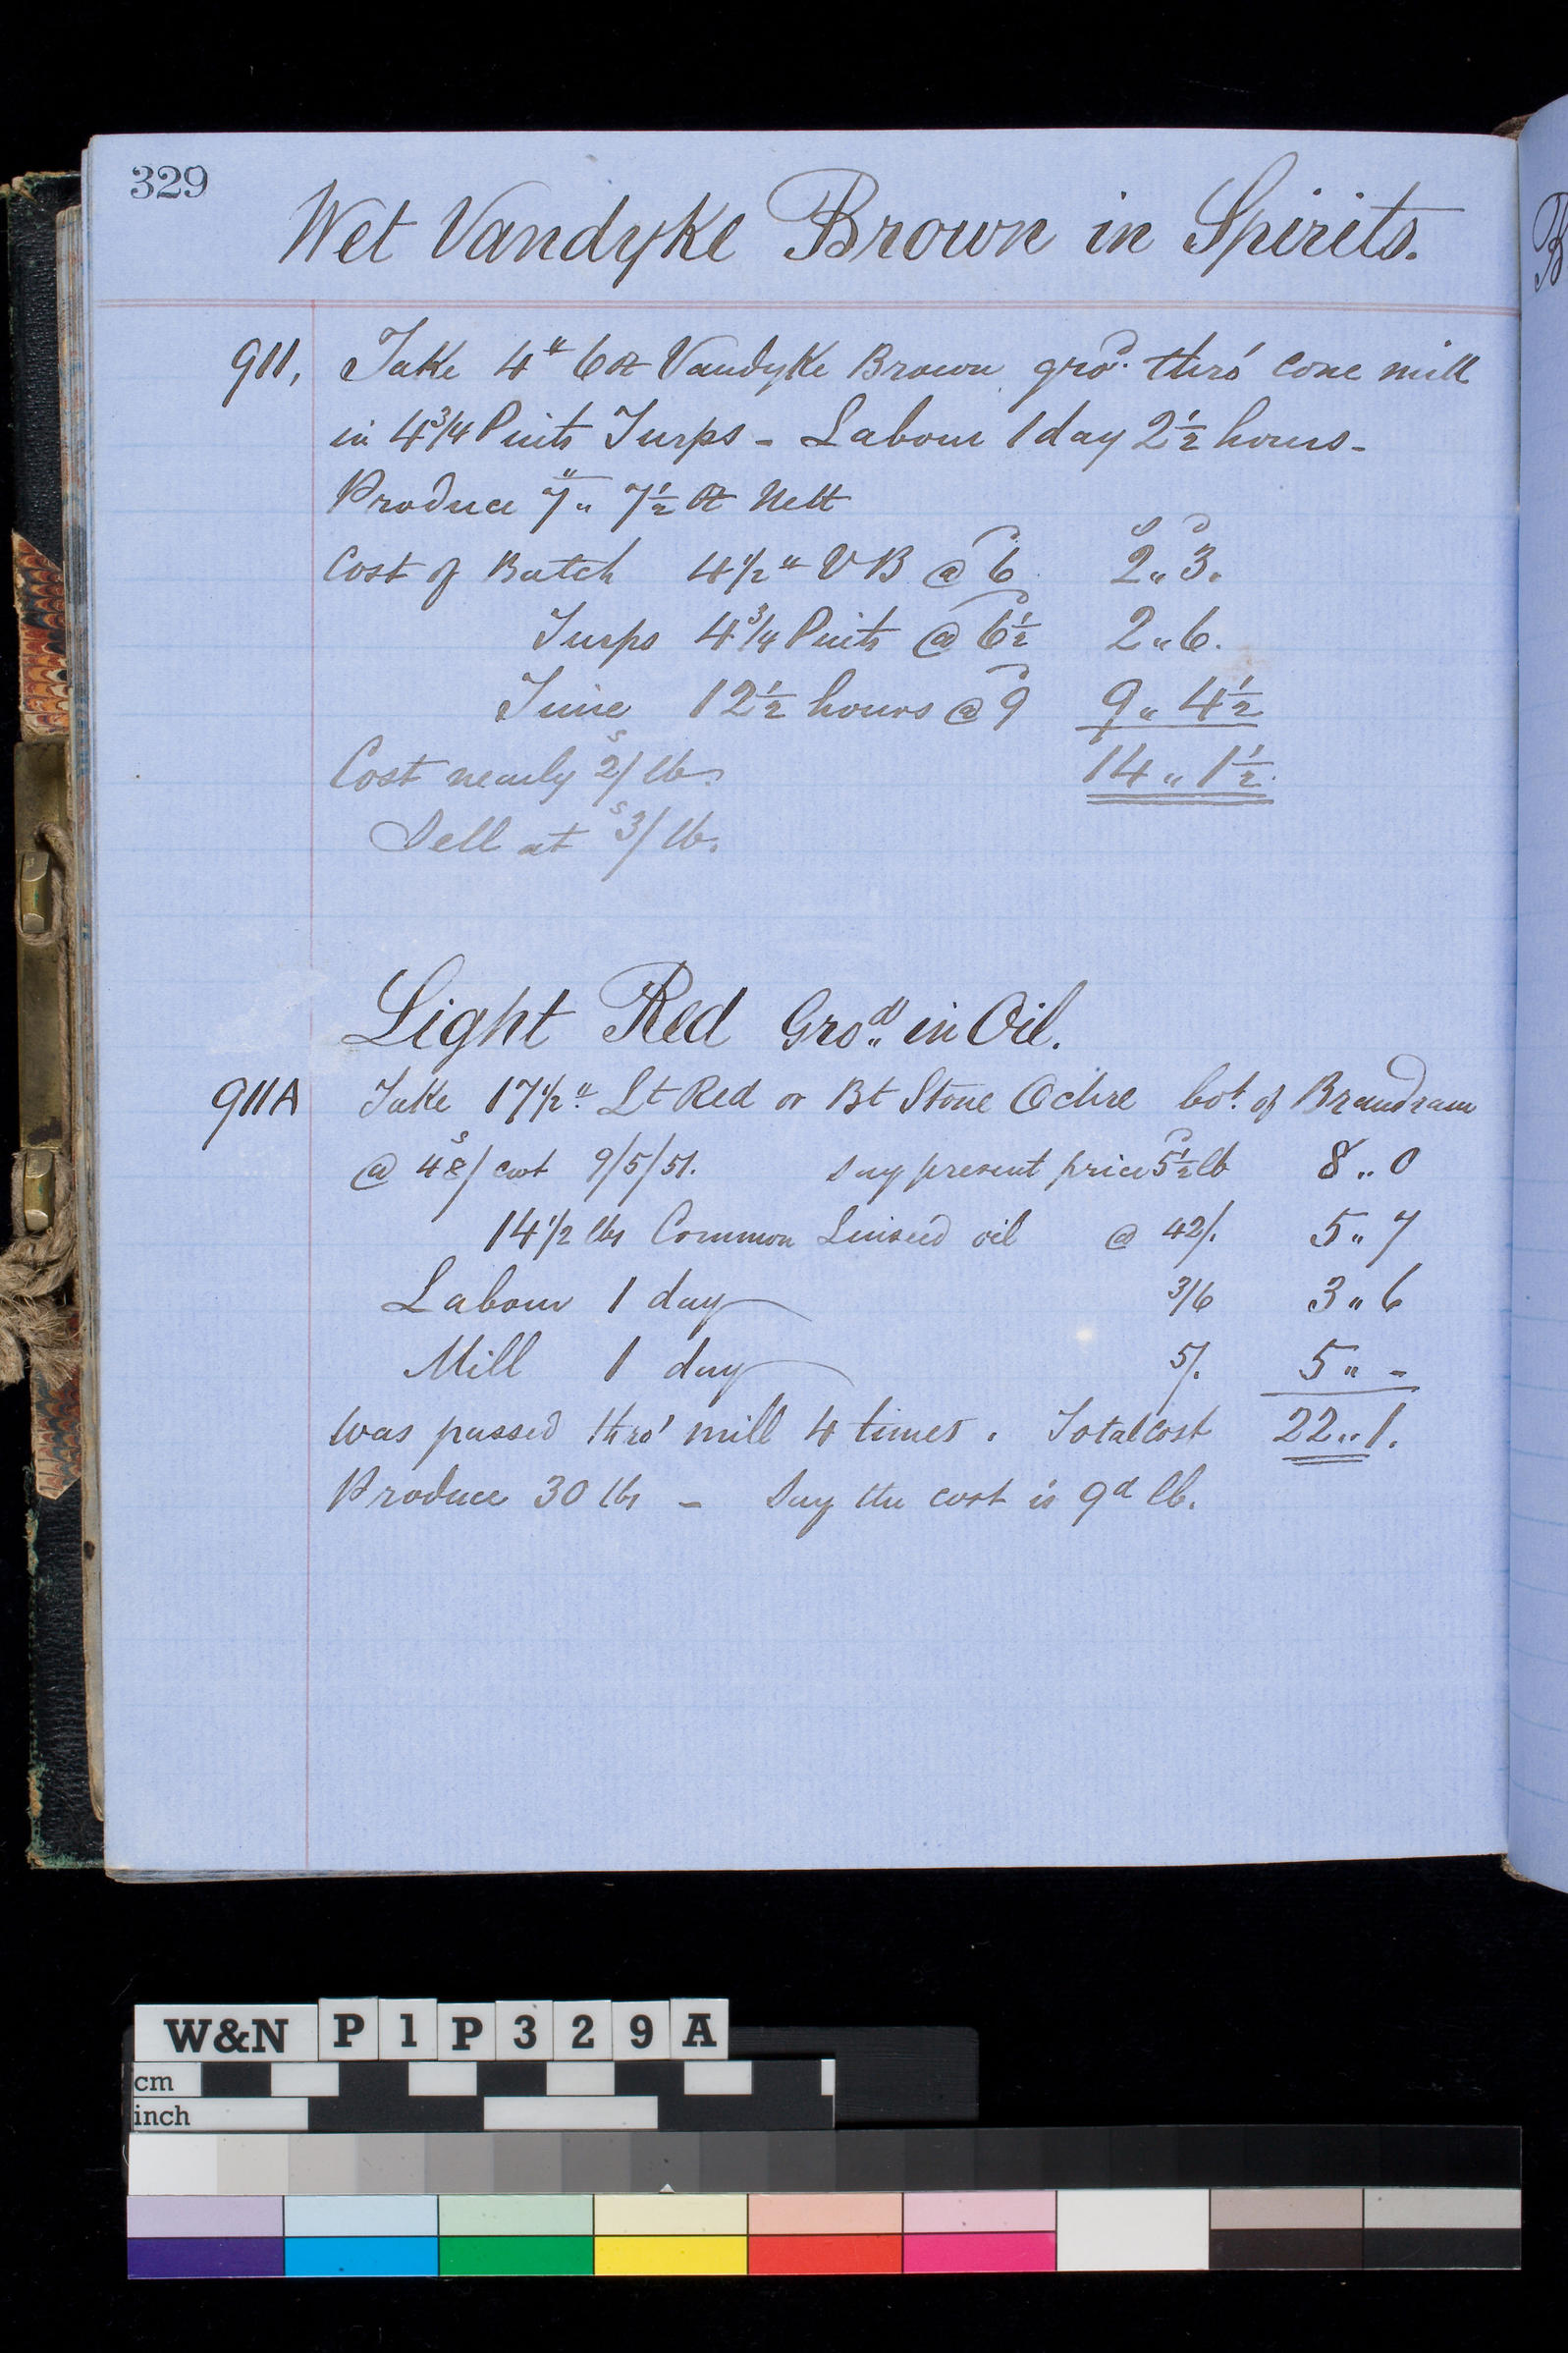 329
Wet Vandyke Brown in Spirits.
911, Take 4 " 6 oz Vandyke Brown gro.d thro' cone mill
in 4 3/4 Pints Turps - Labour 1 day 2 1/2 hours -
Produce 7 " 7 1/2 oz Nett
S D
Cost of Batch 4 1/2 " VB @ 6 D 2 " 3.
Turps 4 3/4 Pints @ 6 1/2 D 2 " 6.
Time 12 1/2 hours @ 9 D 9 " 4 1/2
Cost nearly 2 s/ lb. 14 " 1 1/2
Sell at 3 s/ lb.
Light Red Gro.d in Oil.
911A Take 17 1/2 " Lt Red or Bt Stone Ochre bot. of Brandram
@ 48 s/ cwt 9/5/51. Say present price 5 1/2 D lb 8 " 0
14 1/2 lbs Common Linseed oil @ 42/. 5 " 7
Labour 1 day 3/6 3 " 6
Mill 1 day 5/. 5 " -
Was passed thro' mill 4 times. Total cost 22 " 1.
Produce 30 lbs - Say the cost is 9d lb.
W&N P1P329A
cm
inch